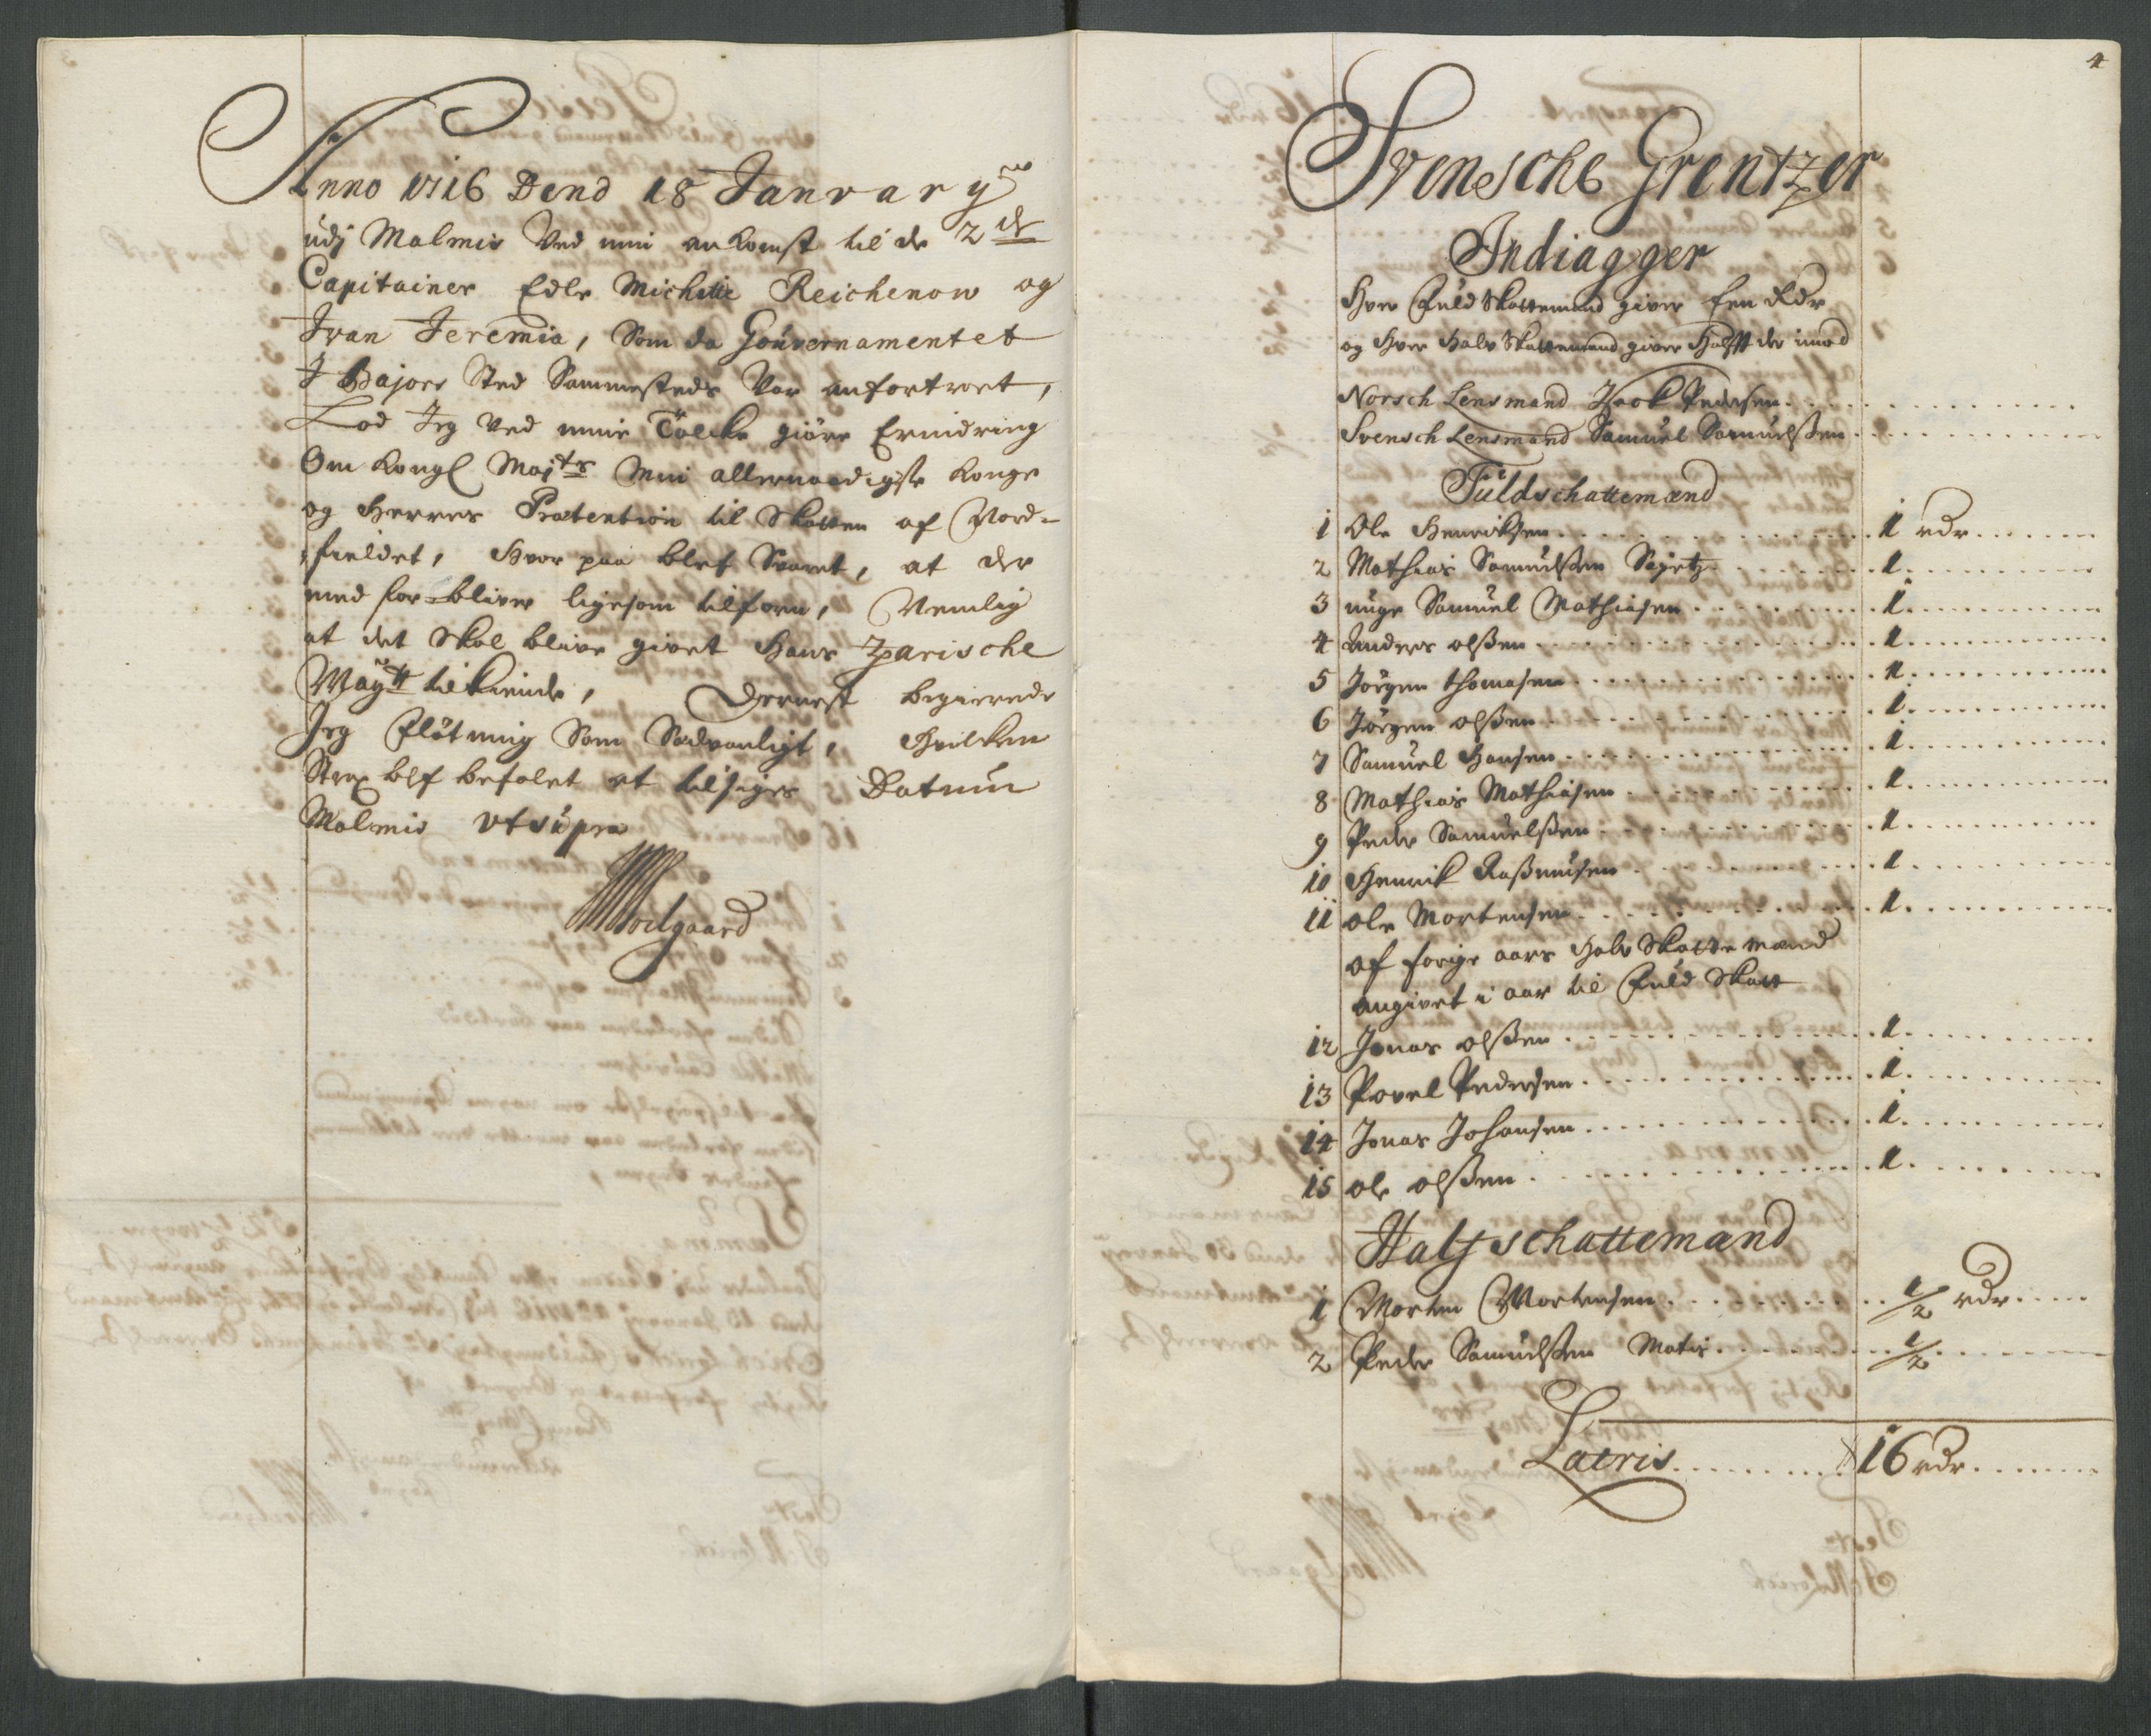 Anno 1716 Dend 18 Januarÿ
udj Malmis Ved min ankomst til de 2de
Capitainer Edle Michelle Reichenow og
Ivan Jeremia, Som da Gouvernamentet
I Bajors Sted Sammesteds Var anfortroet,
Lod Jeg Ved mine Tolcke giöre Erindring
Om Kongl Maÿts Min allernaadigste Konge
og Herres Prætention til Skatten af Nord-
fieldet, Hvor paa blef Svaret, at der
med for-bliver ligesom tilforn, Nemlig
at det Skal blive givet Hans Zarische
Maÿtt tilkiende, Dernest begierede
Jeg Flötning Som Sædvanligt, Hvilken
Strax blef befalet at tilsiges Datum
Malmis Vt supra
Soelgaard
4
Svensche Grentzer
Indiagger
Hver Fuld Skattemand giver Een Rdr
og Hver Halv Skattemand giver Halft der imod
Norsch Lensmand Isack Pedersen
Svensch Lensmand Samuel Samuelsen
Fuldschattemænd
1 Ole Henriksen 1 rdr
2 Mathias Samuelsen Sajetz 1
3 unge Samuel Mathiasen 1
4 Anders olsen 1
5 Jörgen Thomasen 1
6 Jörgen olsen 1
7 Samuel Hansen 1
8 Mathias Mathiasen 1
9 Peder Samuelsen 1
10 Henrik Rasmusen 1
11 ole Mortensen 1
af forige aars Halv Skattemænd
angivet i aar til Fuld Skatt
12 Jonas olsen 1
13 Povel Pedersen 1
14 Jonas Johansen 1
15 ole olsen 1
Halfschattemænd
1 Morten Mortensen 1/2 rdr
2 Peder Samuelsen Matis 1/2
Lateris 16 rdr